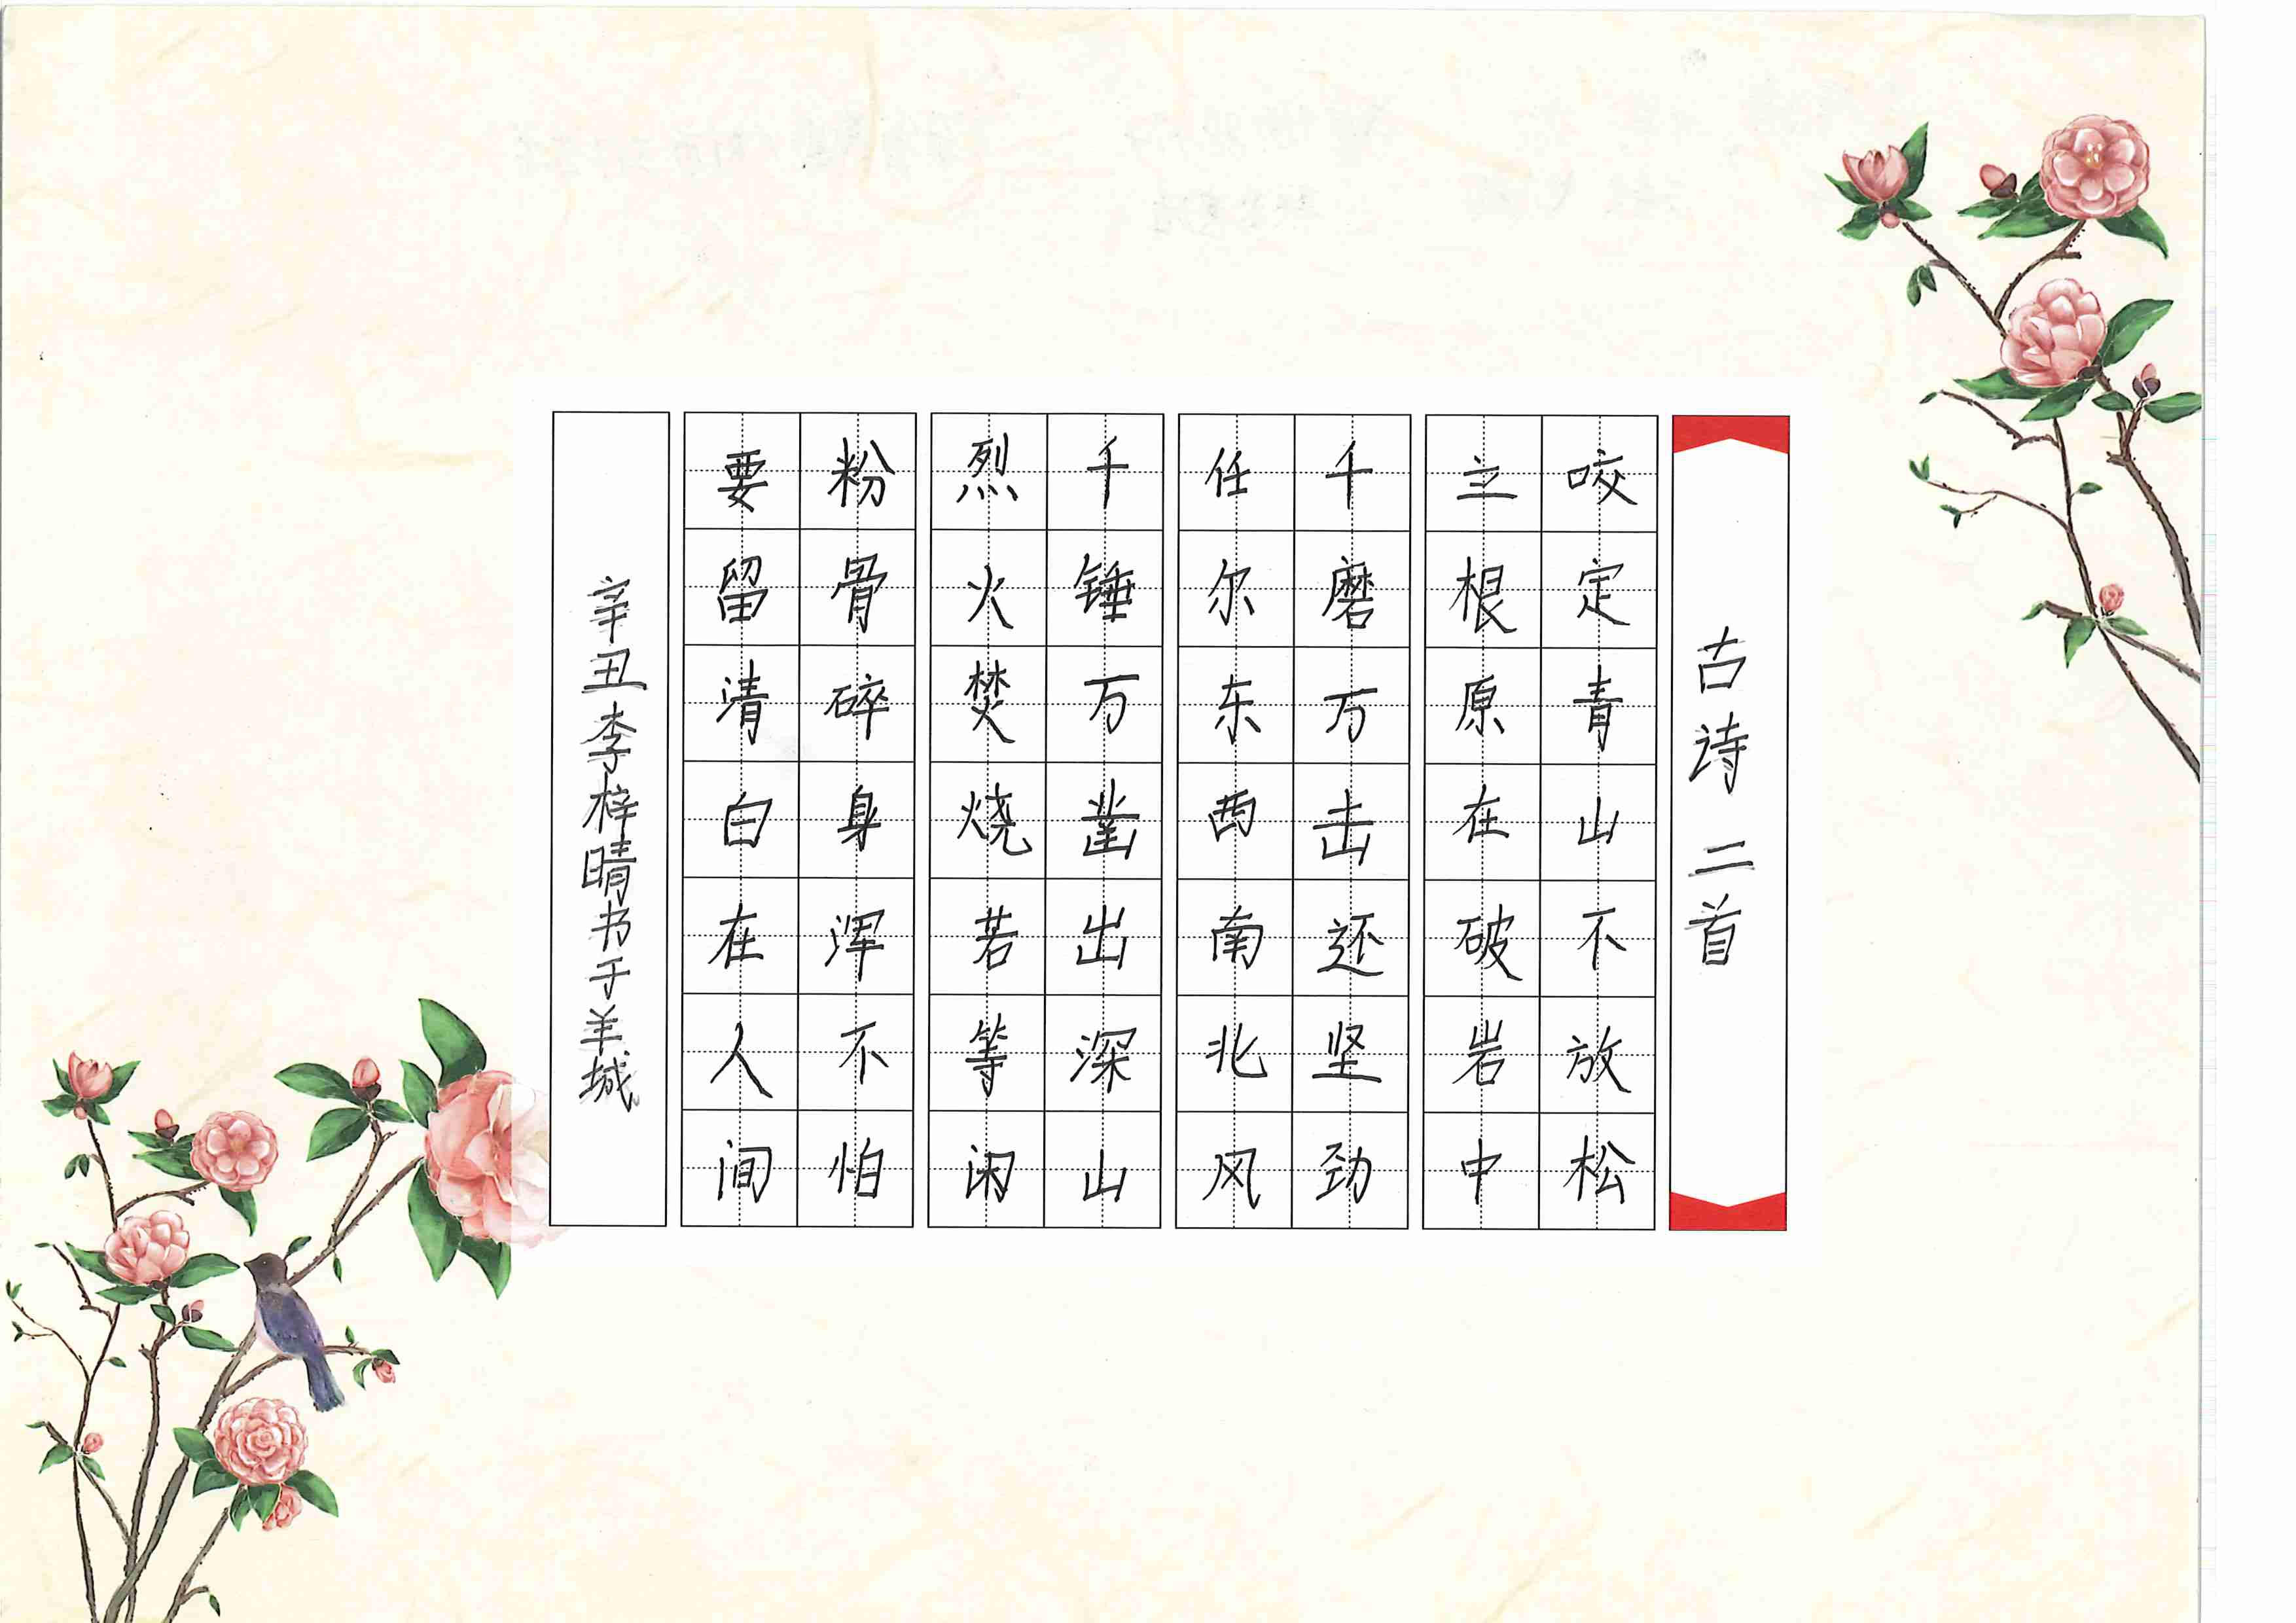 古诗二首
咬定青山不放松
立根原在破岩中
千磨万击还坚劲
任尔东西南北风
千锤万凿出深山
烈火焚烧若等闲
粉骨碎身浑不怕
要留清白在人间
辛丑李梓晴书于羊城